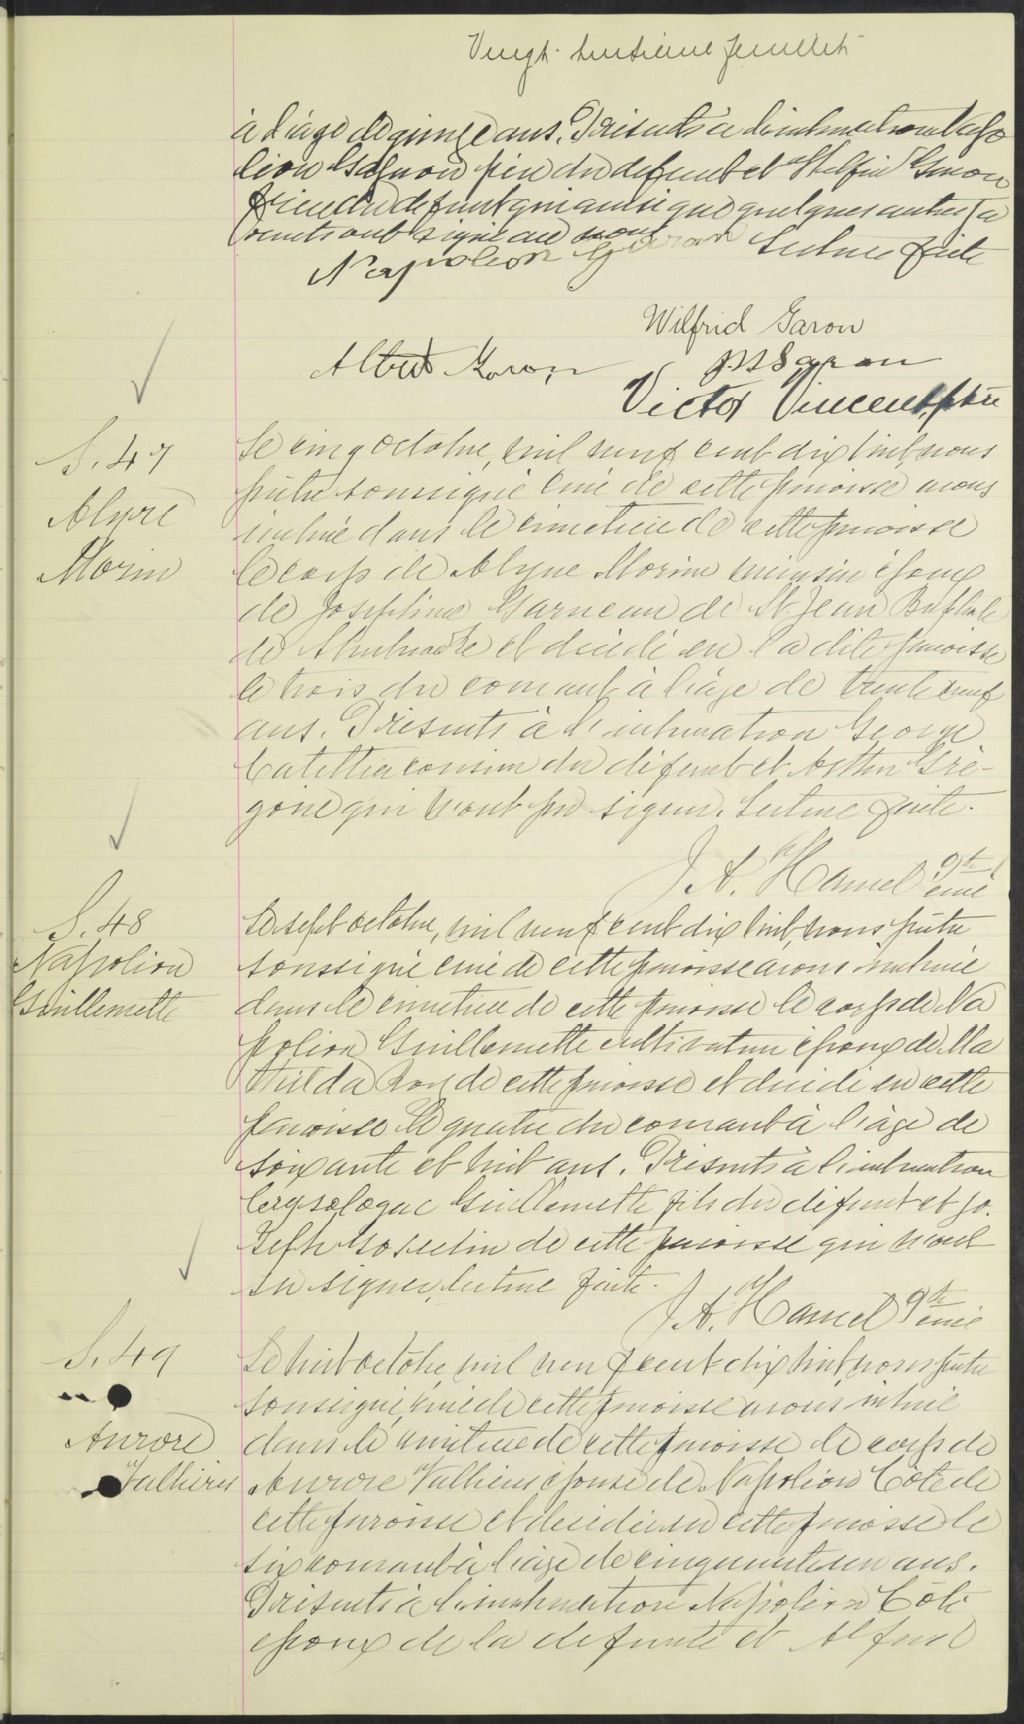 Vingt-huitième feuillet
à l'âge de quinze ans. Présents à l'inhumation Napo
léon Garon père du défunt et Wilfrid Garon
frère du défunt qui ainsi que quelques autres pa
rents ont signé avec nous Lecture faite
Napoléon Garon
Wilfrid Garon
Albert Garon
Victor Vincent, ptre
S. 47
Alyre
Morin
Le cinq octobre, mil neuf cent dix huit, nous
prêtre soussigné curé de cette paroisse avons
inhumé dans le cimetière de cette paroisse
le corps de Alyre Morin époux
de Joséphine Garneau de St Jean Baptiste
de et décédé en la dite paroisse
le trois du courant à l'âge de trente neuf
ans. Présents à l'inhumation George
cousin du défunt et Arthur Gré-
goire qui n'ont pu signer. Lecture faite.
J. A. Hamel ptre curé
S. 48
Napoléon
Guillemette
Le sept octobre, mil neuf cent dix huit, nous prêtre
soussigné curé de cette paroisse avons inhumé
dans le cimetière de cette paroisse le corps de Na
poléon Guillemette cultivateur époux de Ma
thilda Roy de cette paroisse et décédé en cette
paroisse le quatre du courant à l'âge de
soixante et huit ans. Présents à l'inhumation
Guillemette fils du défunt et Jo.
seph Gosselin de cette paroisse qui n'ont
su signer, lecture faite.
J. A. Hamel ptre curé
S. 49
Aurore
Vallières
Le huit octobre, mil neuf cent dix huit nous prêtre
soussigné, curé de cette paroisse avons inhumé
dans le cimetière de cette paroisse le corps de
Aurore Vallières épouse de Napoléon Côté de
cette paroisse et décédée en cette paroisse le
six courant à l'âge de cinquante un ans.
Présents à l'inhumation Napoléon Côté
époux de la défunte et Alfred